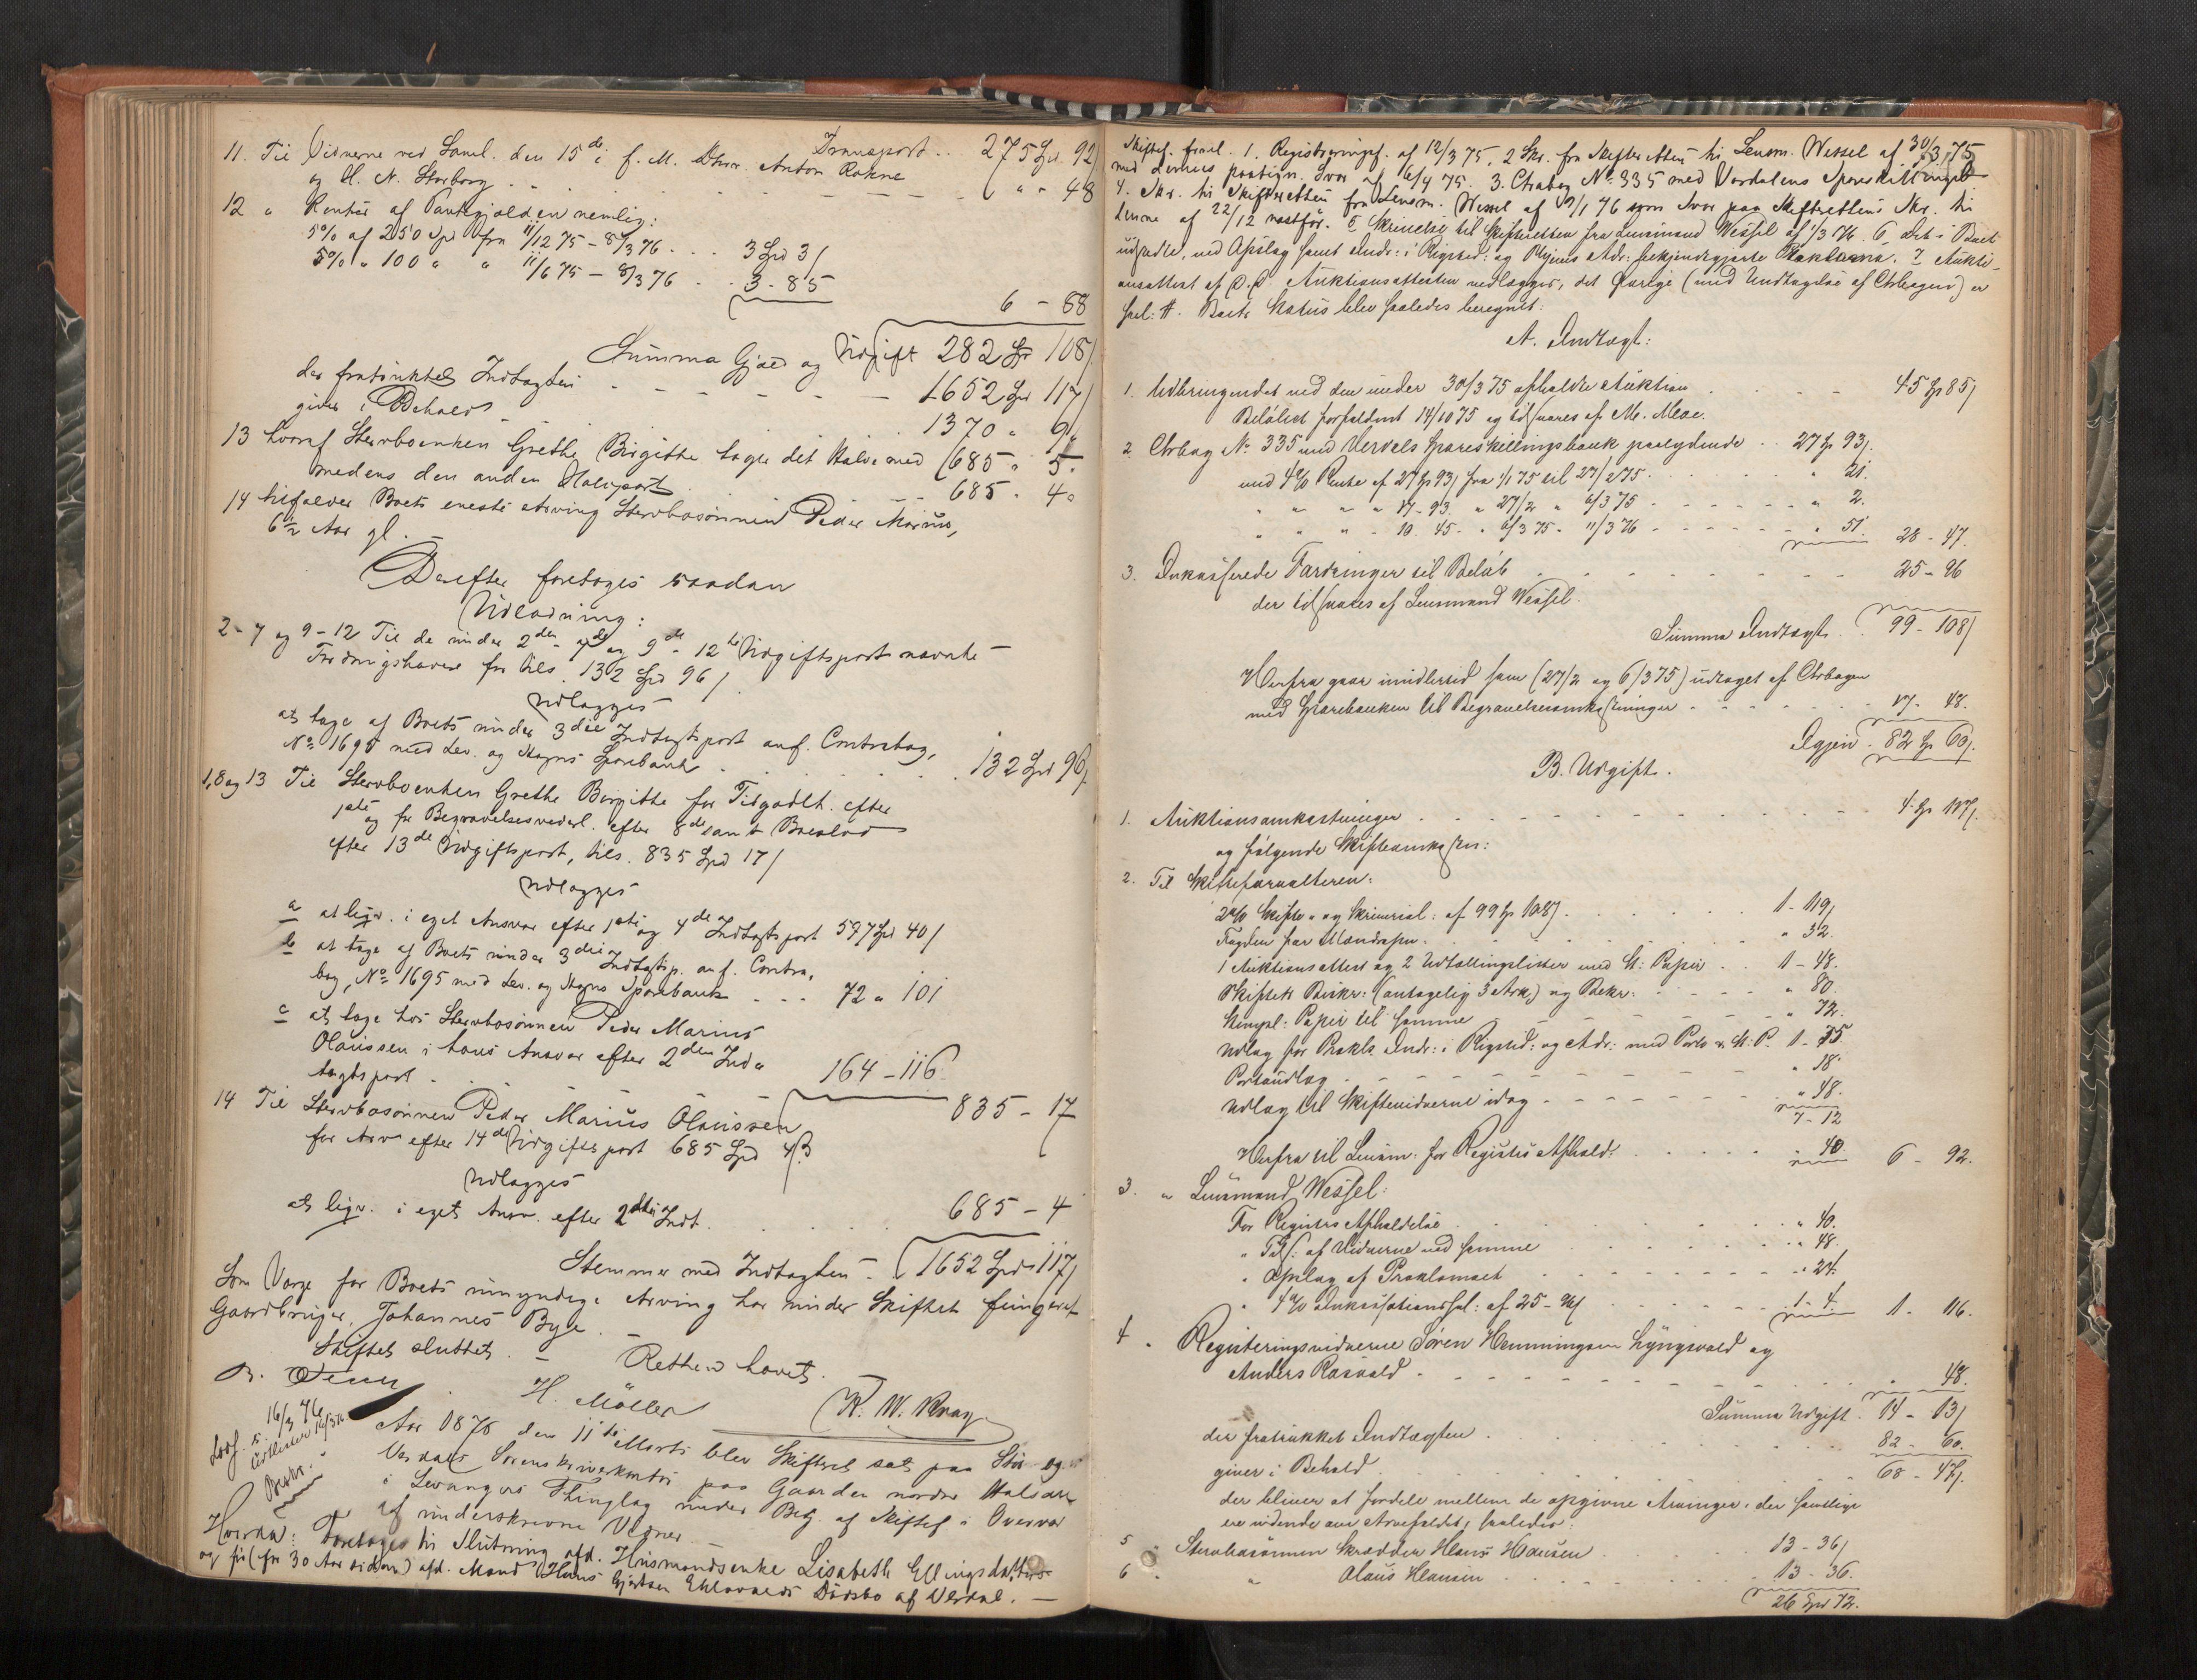 Transport .. 275 Spd 92
11. Til Vidnerne ved Saml. den 15de i f. M. Dhrr Anton Rokne
og O. N. Storborg . . " " 48
12 " Renter af Pantegjælden nemlig:
5% af 250 Spd fra 11/12 75 - 8/3 76 . . 3 Spd 3/
5% " 100 " " 11/6 75 - 8/3 76 . . 3 - 85
6 - 88
Summa Gjæld og Udgift 282 Spd 108/
der fratrukket Indtægten - - - 1652 Spd 117/
giver i Behold . . 1370 " 9/
13 hvoraf Stervboenken Grethe Birgitte tager det Halve med 685 " 5
medens den anden Halvpart . . 685 " 4
14 tilfalder Boets eneste Arving Stervbosønnen Peder Marius,
6½ Aar gl. -
Derefter foretoges saadan
Udlodning:
2-7 og 9-12 Til de under 2den - 7de og 9de - 12te Udgiftspost nævnte
Fordringshavere for tils. 132 Spd 96/
udlægges
at tage af Boets under 3die Indtægtspost anf. Contrabog,
No 1695 med Lev. og Skogns Sparebank . . 132 Spd 96/
1, 8 og 13 Til Stervboenken Grethe Birgitte for Tilgodeh. efter
1ste og for Begravelsesvederl. efter 8de samt Boeslod
efter 13de Udgiftspost, tils. 835 Spd 17/
udlægges
a at ligv. i eget Ansvar efter 1ste og 4de Indtægtspost 597 Spd 40/
b at tage af Boets under 3die Indtægtsp. anf. Contra-
bog, No 1695 med Lev. og Skogns Sparebank - - - 72 " 101
c at tage hos Stervbosønnen Peder Marius
Olaussen i hans Ansvar efter 2den Ind-
tægtspost . . 164 - 116
835 - 17
14 Til Stervbosønnen Peder Marius Olaussen
for Arv efter 14de Udgiftspost 685 Spd 4 ß
udlægges
at ligv. i eget Ansv. efter 2den Indt. . . 685 - 4
Stemmer med Indtægten - 1652 Spd 117/
Som Værge for Boets umyndige Arving har under Skiftet fungeret
Gaardbruger, Johannes Bye. -
Skiftet sluttet. - Retten hævet.
H. Möller K. W. Krag
16/3 76
Aar 1876 den 11te Marts blev Skifteret sat paa Stør- og
Verdals Sorenskriverkontor paa Gaarden nordre Halsan
i Levangers Thinglag under Betj. af Skiftef. i Overvær
af underskrevne Vidner.
Hvorda: Foretoges til Slutning afd. Husmandsenke Lisabeth Ellingsdatters
og før (for 30 Aar siden) afd. Mand Hans Dødsbo af Verdal. -
Skiftef. freml. 1. Registreringsf. af 12/3 75, 2 Skr. fra Skifteretten til Lensm. Wessel af 30/3 75
med dennes paategn. Svar af 6/4 75. 3. Ctrabog No 335 med Værdalens Spareskillingsb.
4. Skr. til Skifteretten fra Lensm. Wessel af 76 som Svar paa Skifterettens Skr. til
denne af 22/12 næstfør. 5 Skrivelse til Skifteretten fra Lensmand Wessel af 1/3 76. 6, det i Boet
udstedte, ved Opslag samt Indr: i Rigstid: og Adr: bekjendtgjorte Proklama. 7 Aukti-
onsattest af D. D. Auktionsattesten vedlægges, det Øvrige (med Undtagelse af Ctrbogen) er
. Boets Status blev saaledes beregnet:
A. Indtægt:
1. Udbringendet ved den under 30/3 75 afholdte Auktion . . 45 Sp 85/
Beløbet forfaldent 14/10 75 og tilsvares af M. Moe.
2. Ctrbog No 335 med Verdals Spareskillingsbank paalydende . . 27 Sp 93/
med 4% Rente af 27 Sp 93/ fra 1/1 75 til 27/2 75 . . " 21.
" " " " 17 - 93. " 27/2 " 6/3 75 - - - " 2.
" " " " 10 - 45. " 6/3 75 - 11/3 76 - - - " 51. 28 - 47.
3. Inkasserede Fordringer til Beløb - - - 25 - 96
der tilsvares af Lensmand Wessel.
Summa Indtægt . . 99 - 108/
Herfra gaar imidlertid som (27/2 og 6/3 75) udtaget af Ctrbogen
med Sparebanken til Begravelsesomkostninger - - - 17 - 48.
Igjen . 82 Sp 60/.
B. Udgift.
1. Auktionsomkostninger . . 4 Sp 117/.
og følgende Skifteomkostn:
2. Til Skifteforvalteren:
2% Skifte- og Skriversal: af 99 Sp 108/. . . 1 - 119/
Fogden har Mandsspn. . . " 32.
1 Auktionsattest og 2 Udtællingslister med St: Papir . . 1 - 48.
Skiftets Beskr: (antagelig 3 Ark,) og Bekr: - - - " 80.
Stempl: Papir til samme - - - " 72.
Udlæg for Prokl: Indr: i Rigstid: og Adr: med Porto & St: P. 1 - 75
Portoudlæg - - - " 18.
Udlæg til Skiftevidnerne idag - - - " 48.
7 - 12
Herfra til Lensm: for Registrs Afhold: . . " 40. 6 - 92.
3. " Lensmand Wessel:
For Registrs Afholdelse . . " 40.
" Tils. af Vidnerne ved samme . . " 48.
" Opslag af Proklamaet . . " 24.
" 4% Inkassationssal: af 25 - 96/ . . 1 - 4. 1 - 116.
4 " Registreringsvidnerne Søren Hemmingsen Lyngsvold og
Anders Rosvold . . " 48.
Summa Udgift . 14 - 13/
der fratrukket Indtægten . . 82 - 60.
giver i Behold . . 68 - 47/.
der bliver at fordele mellem de opgivne Arvinger, der samtlige
ere vidende om Arvefaldet, saaledes:
5 " Stervbosønnen Skrædder Hans Hansen . . 13 - 36/
6 " " Olaus Hansen . . 13 - 36.
26 Spd 72.